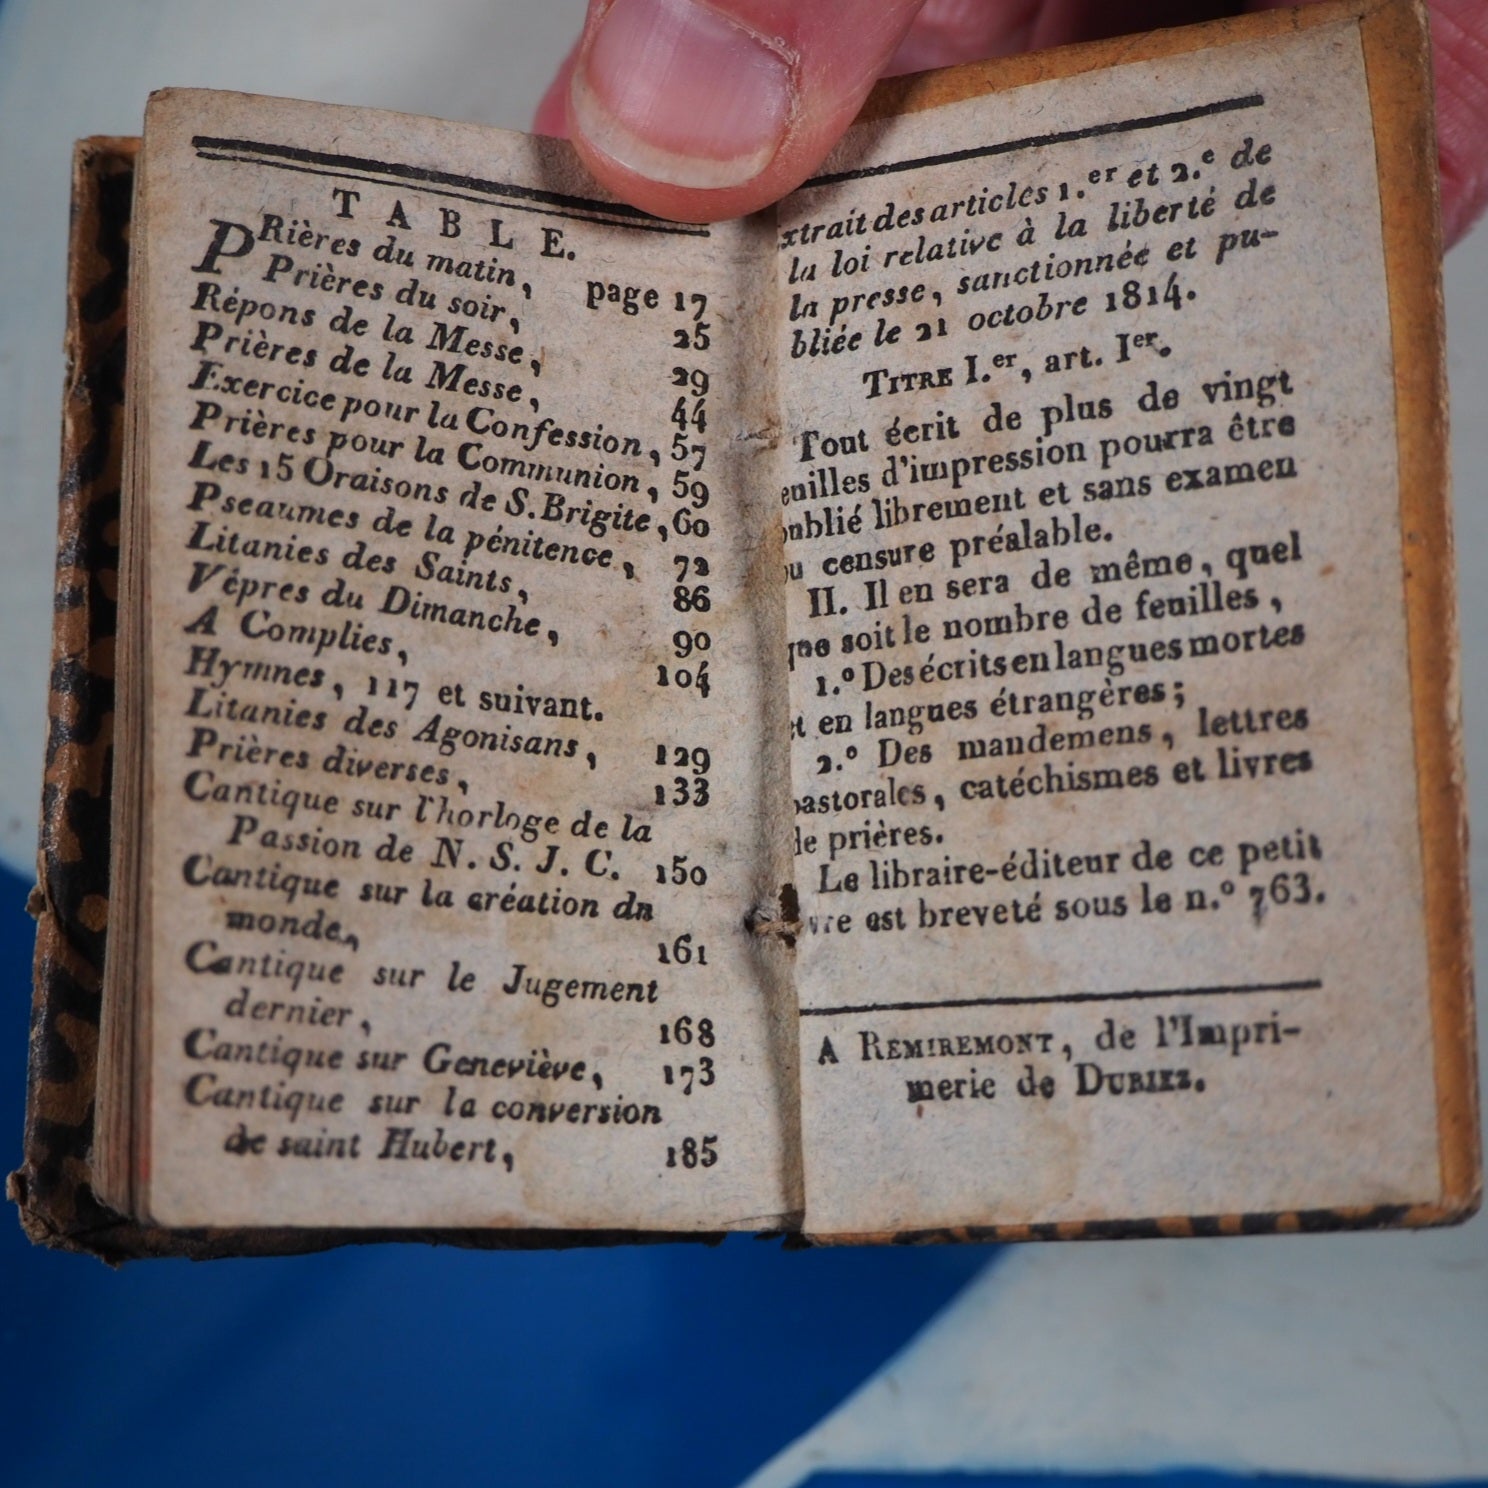 TABLE.
PRières du matin, page 17
Prières du soir, 25
Répons de la Messe, 29
Prières de la Messe, 44
Exercice pour la Confession, 57
Prières pour la Communion, 59
Les 15 Oraisons de S. Brigite, 60
Pseaumes de la pénitence, 72
Litanies des Saints, 86
Vêpres du Dimanche, 90
A Complies, 104
Hymnes, 117 et suivant.
Litanies des Agonisans, 129
Prières diverses, 133
Cantique sur l'horloge de la
Passion de N. S. J. C. 150
Cantique sur la création du
monde, 161
Cantique sur le Jugement
dernier, 168
Cantique sur Geneviève, 173
Cantique sur la conversion
de saint Hubert, 185
xtrait des articles 1.er et 2.e de
la loi relative à la liberté de
la presse, sanctionnée et pu-
bliée le 21 octobre 1814.
TITRE I.er, art. Ier.
Tout écrit de plus de vingt
euilles d'impression pourra être
publié librement et sans examen
ou censure préalable.
II. Il en sera de même, quel
que soit le nombre de feuilles,
1.º Des écrits en langues mortes
et en langues étrangères;
2.º Des mandemens, lettres
pastorales, catéchismes et livres
de prières.
Le libraire-éditeur de ce petit
vre est breveté sous le n.º 763.
A REMIREMONT, de l'Impri-
merie de DUBIEZ.